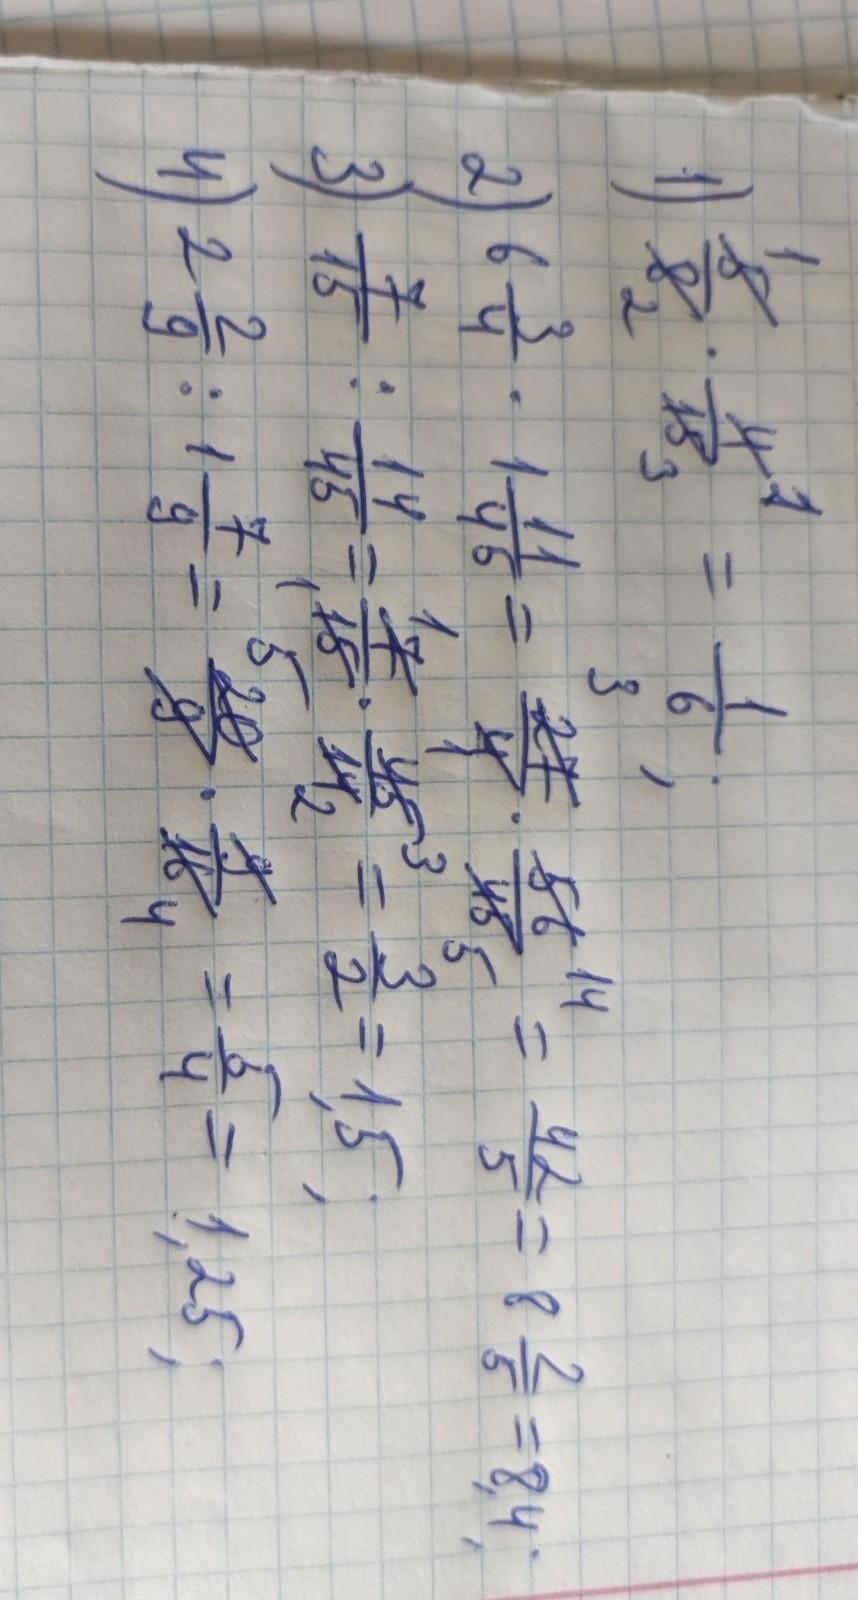 1) 5/8 · 4/15 = 1/6;
2) 6 3/4 · 1 11/45 = 27/4 · 56/45 = 42/5 = 8 2/5 = 8,4;
3) 7/15 : 14/45 = 7/15 · 45/14 = 3/2 = 1,5;
4) 2 2/9 : 1 7/9 = 20/9 · 9/16 = 5/4 = 1,25;